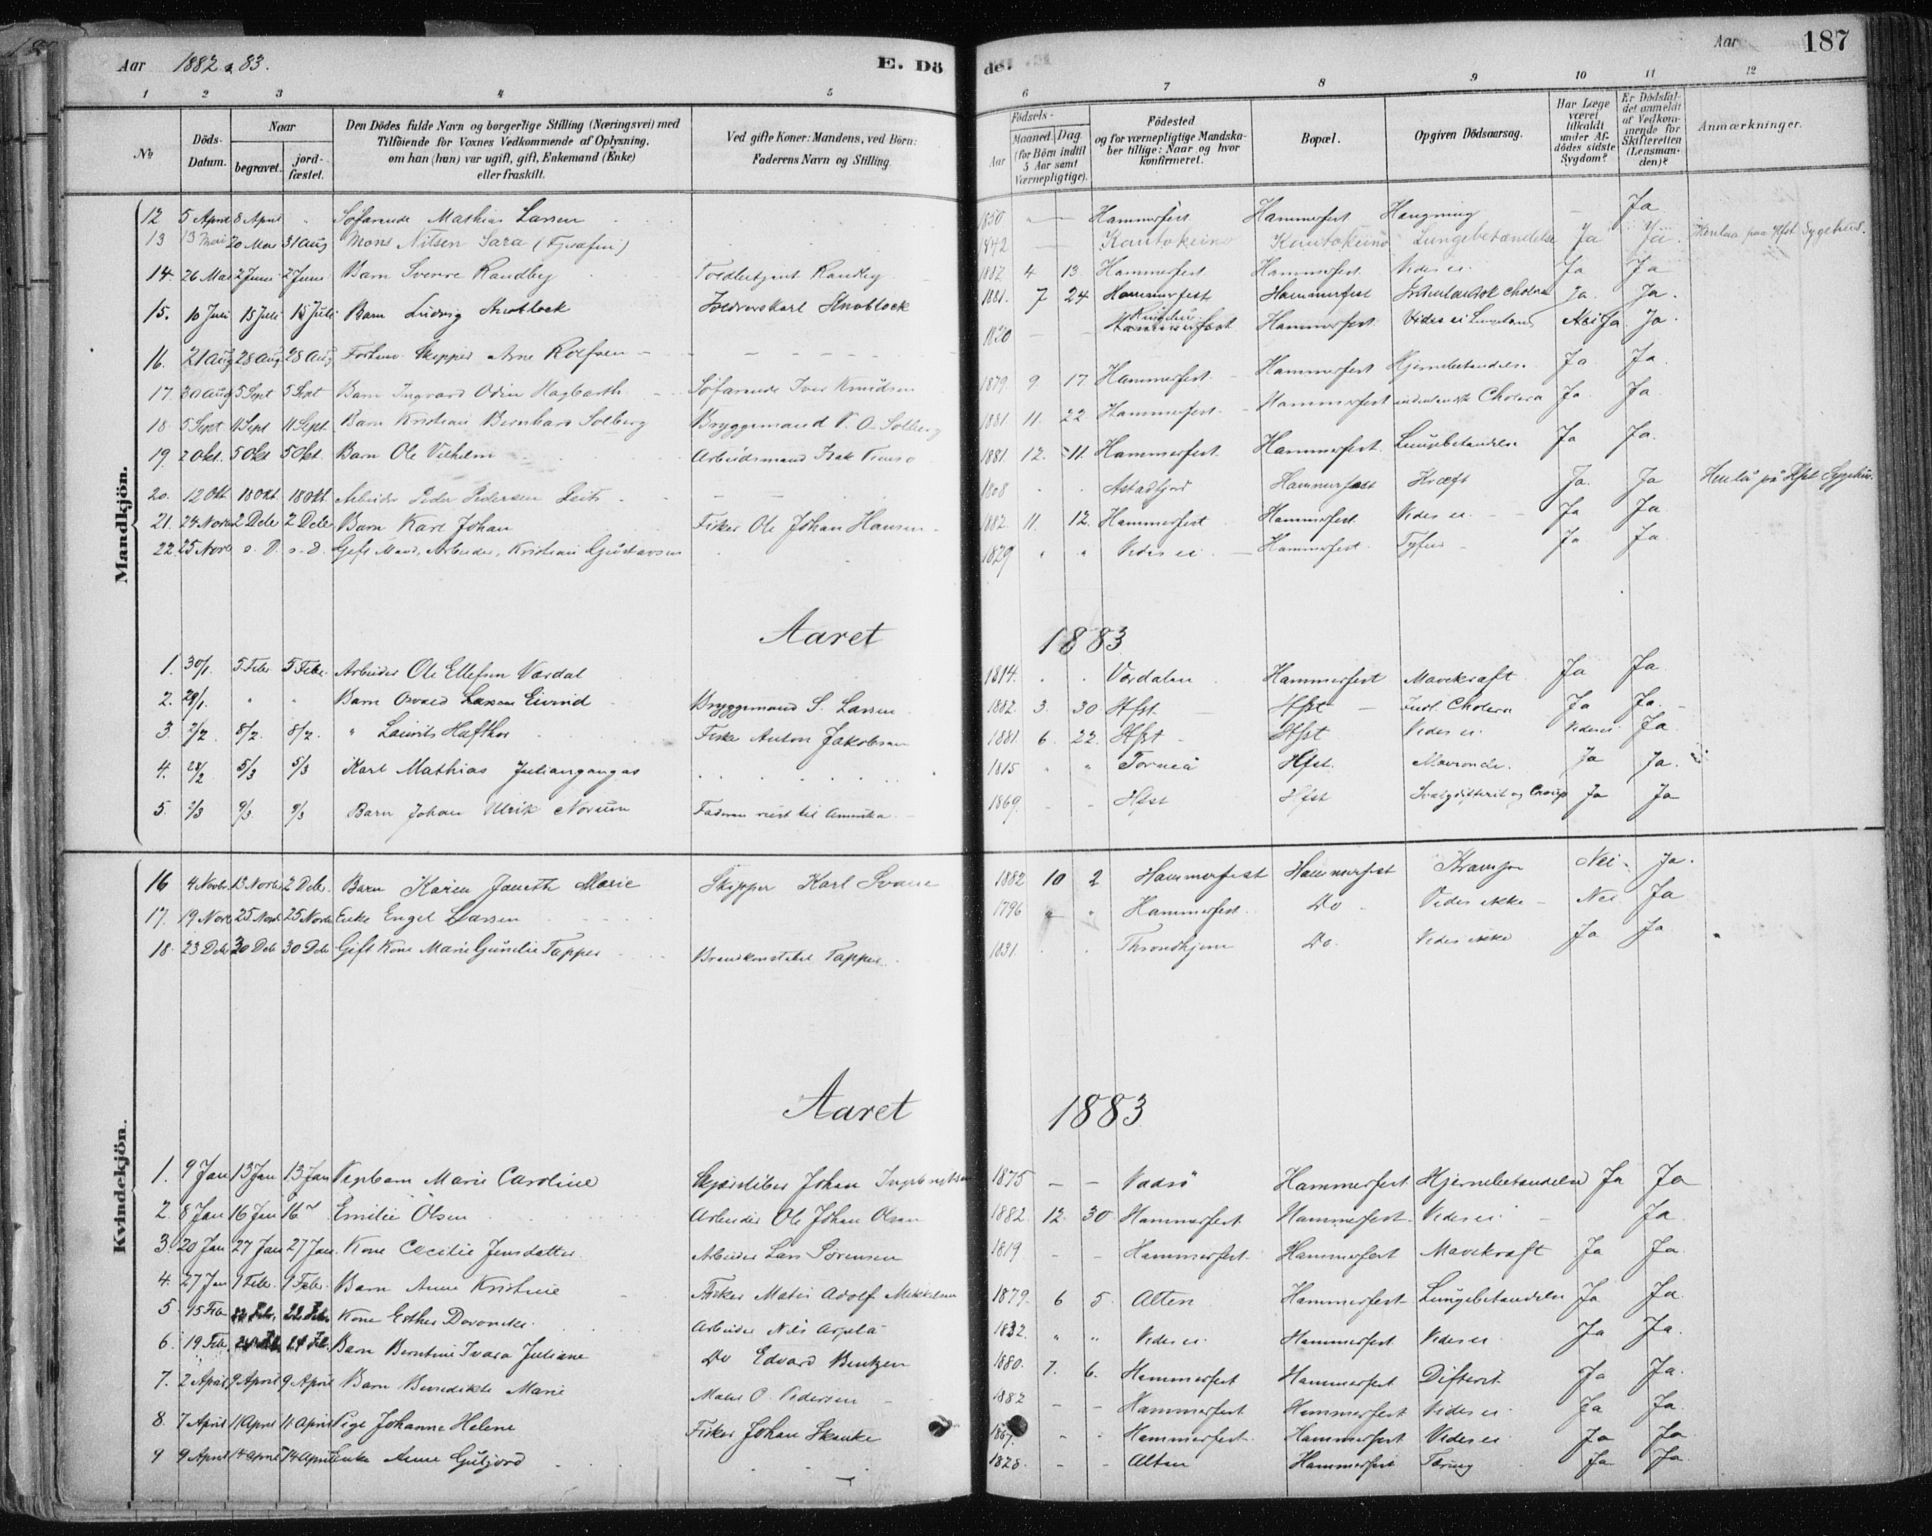 Aar 1882 & 83. E. Dö
de. Aar 187
1 2 3 4 5 6 7 8 9 10 11 12
No
Döds-Datum.
Naar
begravet.
jord-fæstet.
Den Dödes fulde Navn og borgerlige Stilling (Næringsvei) med
Tilföiende for Voxnes Vedkommende af Oplysning,
om han (hun) var ugift, gift, Enkemand (Enke)
eller fraskilt.
Ved gifte Koner: Mandens, ved Börn:
Faderens Navn og Stilling.
Födsels-
Aar
Maaned. Dag.
(for Börn indtil
5 Aar samt
Værnepligtige).
Födested
og for værnepligtige Mandska-
ber tillige: Naar og hvor
konfirmeret.
Bopæl.
Opgiven Dödsaarsag.
Har Læge
været
tilkaldt
under Af-
dödes sidste
Sygdom?
Er Dödsfal-
det anmeldt
af Vedkom-
mende for
Skifteretten
(Lensman-
den)?
Anmærkninger.
Mandkjön.
12 5 April 8 April " Söfarende Mathias Larsen 1850 Hammerfest Hammerfest Hængning Ja
13 13 Mai 20 Mai 31 Aug Mons Nilsen Sara 1842 Kautokeino Kautokeino Lungebetændelse Ja Ja. Henlaa paa Hfst Sygehus.
14. 26 Mai 2 Juni 2 Juni Barn Sverre Randby Randby 1882 4 13. Hammerfest Hammerfest Vides ei Ja Ja
15. 10 Juli 15 Juli 15 Juli Barn Ludvig Knoblock Knoblock 1881. 7 24 Hammerfest Hammerfest Cholera Ja. Ja.
16. 21 Aug 28 Aug 28 Aug Skipper Arne Roefsen 1820 Hammerfest Hammerfest. Vides ei Ja. Ja.
17. 30 Aug 5 Sept 5 Sept Barn Ingvard Odin Hagbarth Söfarende Iver Knudsen 1879. 9. 17 Hammerfest. Hammerfest Hjernebetændelse Ja Ja.
18. 5 Sept 11 Sept 11 Sept. Barn Kristian Bernhard Solberg Bryggemand P. O. Solberg 1881. 11. 22 Hammerfest. Hammerfest Cholera Ja Ja.
19. 2 Okt. 5 Okt 5 Okt. Barn Ole Vilhelm Arbeidsmand Isak 1881 12. 11. Hammerfest. Hammerfest. Lungebetændelse Ja Ja.
20. 12 Okt 18 Okt 18 Okt. Arbeider Peder Pedersen 1808 Hammerfest Kræft Ja. Ja Henlå på Hfst Sygehus.
21. 24 Novbr 2 Dcbr 2 Dcbr Barn Karl Johan Fisker Ole Johan Hansen. 1882. 11. 12. Hammerfest Hammerfest. Vides ei. Ja Ja.
22 25 Novb s. D. s. d. Gift Mand, Arbeider, Kristian Gustavsen 1829 " " Vides ei. Hammerfest. Tyfus Ja Ja.
Aaret 1883
1. 30/1. 5. Febr 5 Febr. Arbeider Ole Ellefsen Værdal 1814. Værdalen Hammerfest Mavekræft. Ja Ja.
2. 29/1. " " Barn Osvald Larsen Eivind Bryggemand S. Larsen 1882. 3. 30 Hfst Hfst Indl Cholera Ja Ja.
3. 2/2 8/2. 8/2. " Laurits Hafthor Fisker Anton Jakobsen 1881. 6. 22. Hfst Hfst Vides ei Vides ei Ja.
4. 28/2 5/3 5/3 Karl Mathias Juliangangas 1815 " " Torneå Hfst. Mavonde. Ja Ja.
5. 5/3 9/3. 9/3 Barn Johan Ulrik Norum Faderen reist til Amerika 1869. Hfst Hfst Svælgdifterit og Croup Ja Ja
Kvindekjön.
16 4 Novbr. 13 Novbr 2 Dcbr. Barn Karen Janeth Marie Skipper Karl Svane 1882 10 2 Hammerfest Hammerfest Krampe Nei Ja.
17. 19 Novb 25 Novb 25 Novbr Enke Engel Larsen 1796 Hammerfest. Do Vides ikke Nei Ja
18. 23 Dcbr 30 Dcb 30 Dcbr Gift Kone Marie Gunelie Tapper Brandkonstabel Tapper. 1831. Throndhjem Do. Vides ikke Ja Ja
Aaret 1883
1. 9 Jan 13 Jan 13 Jan Marie Caroline Johan Ingebrigtsen 1875 Vadsö Hammerfest Hjernebetændelse Ja Ja
2. 8 Jan 16 Jan 16 Emilie Olsen Arbeider Ole Johan Olsen 1882. 12. 30 Hammerfest Hammerfest. Vides ei Ja.
3. 20 Jan 27 Jan 27 Jan. Kone Cecilie Jensdatter Arbeider Lars Sörensen 1819 Hammerfest Hammerfest Mavekræft Ja Ja.
4. 27 Jan 1 Febr. 1 Febr. Barn Anne Kristine Fisker Mathis Adolf Mikkelsen 1879. 6 5. Alten Hammerfest Lungebetændelse Ja Ja.
5 15 Febr 22 Febr. Kone Esther Arbeider Nils 1832. " " Vides ei. Hammerfest Vides ei. Ja Ja.
6. 19 Feb. Barn Berntine Juliane Do Edvard Bentzen 1880. 7. 6. Hammerfest Hammerfest Difterit Ja Ja.
7. 2 April 9 April 9 April Barn Benedikte Marie O. Pedersen 1882 Hammerfest Hammerfest Vides ei Ja Ja.
8. 7 April 11 April 11 April Pige Johanne Helene Fisker Johan Skanke 1867. Hammerfest. Hammerfest Vides ei Ja Ja
9 9 April 14 April 14 April Enke Anne Guljord 1828. Alten Hammerfest Tæring Ja Ja.